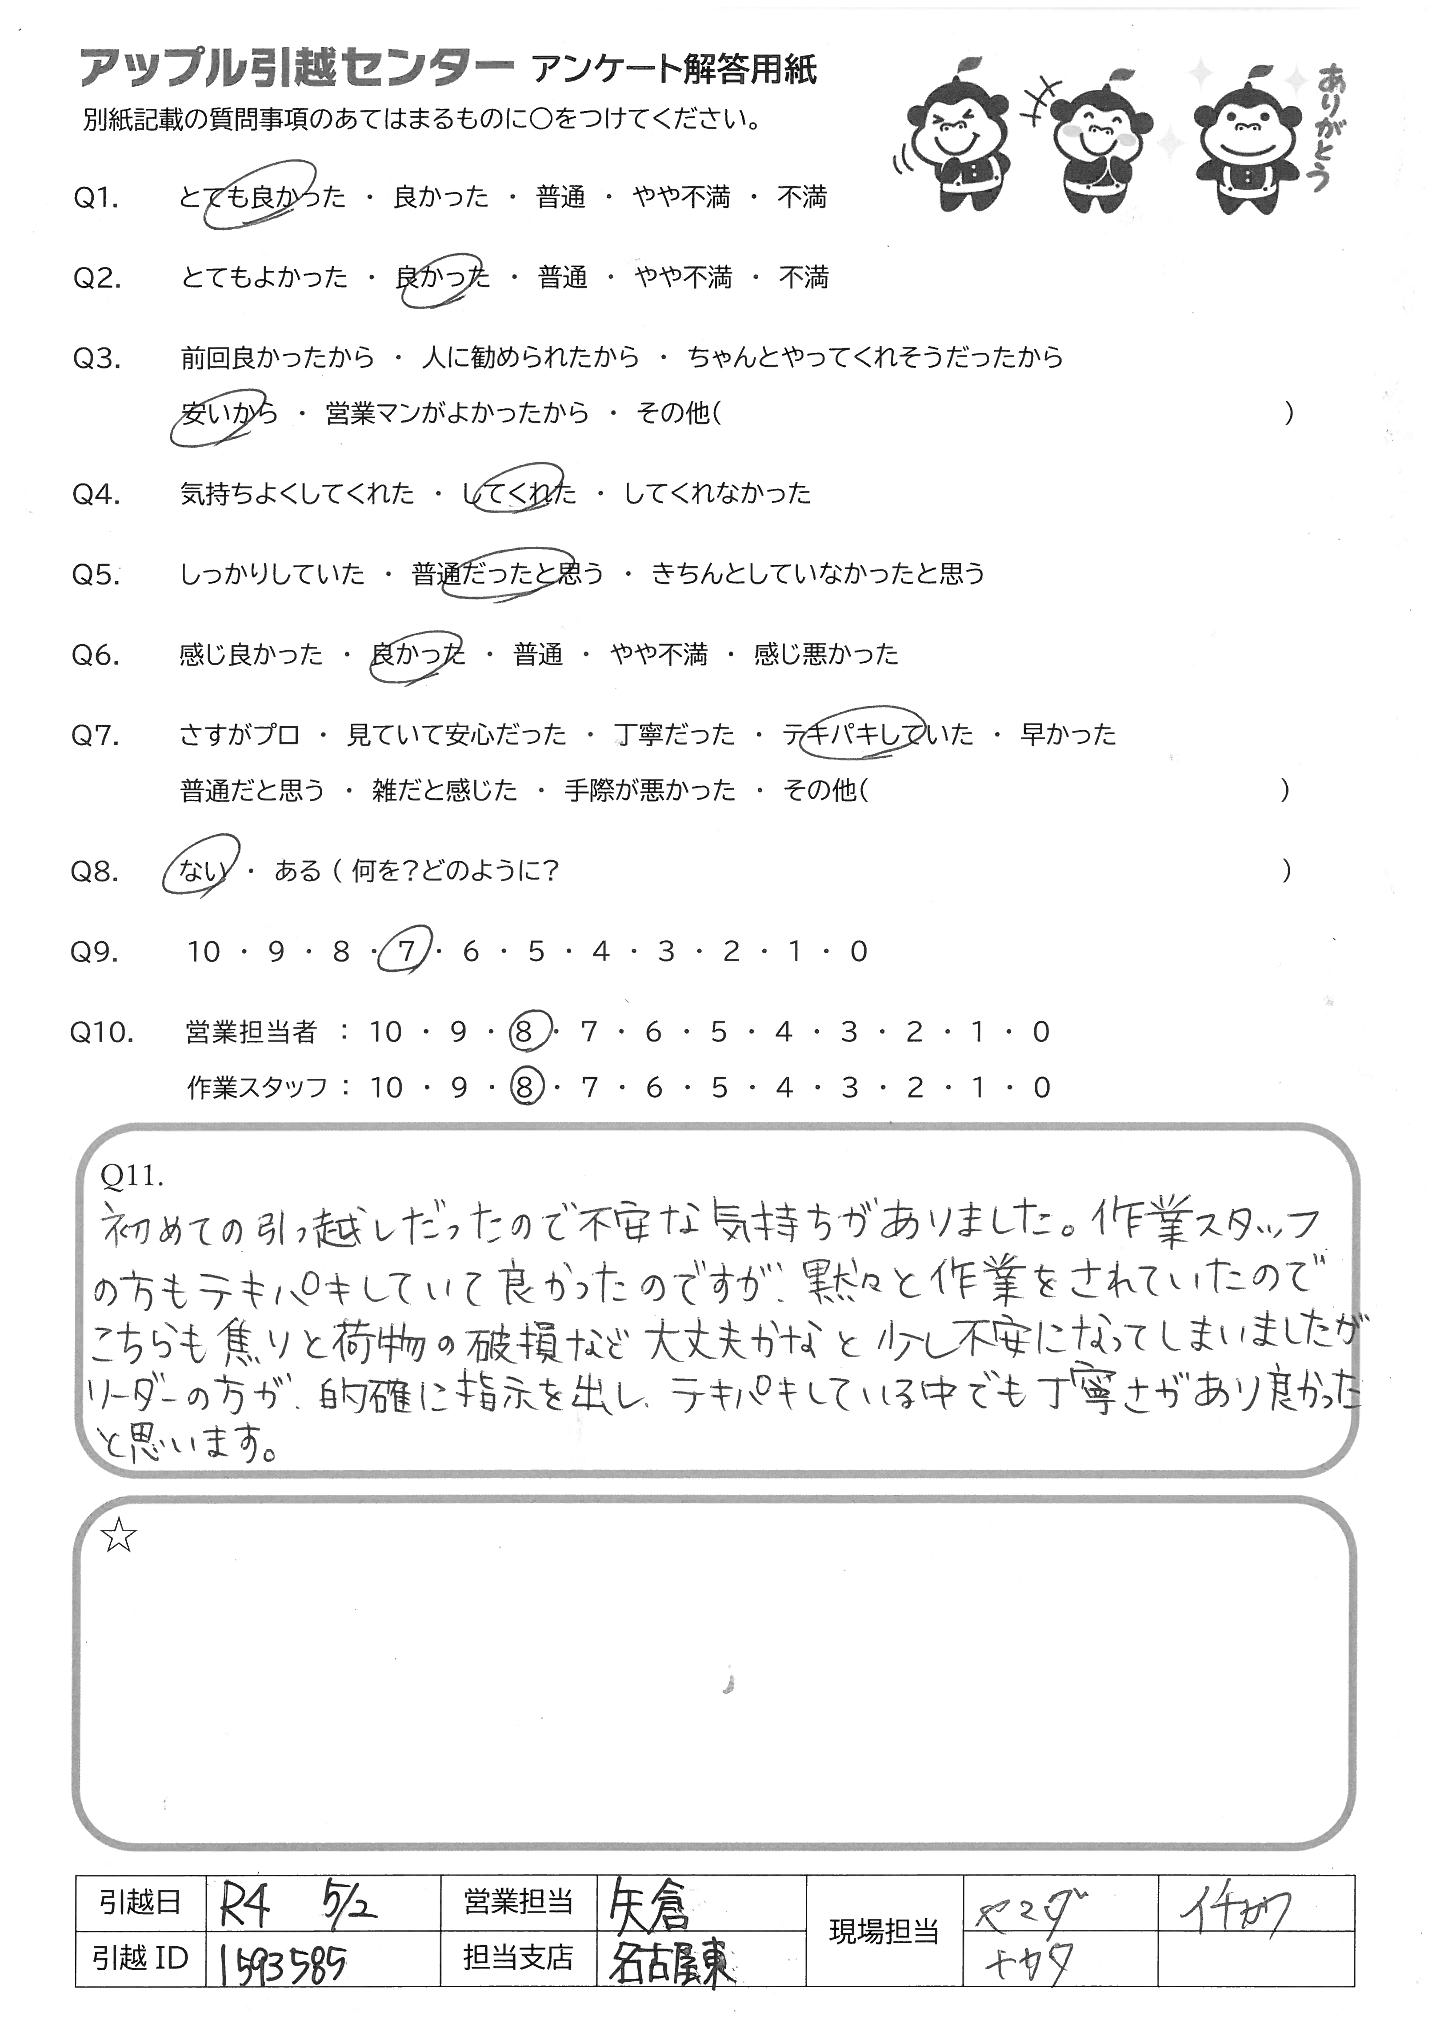 アップル引越センター アンケート解答用紙
別紙記載の質問事項のあてはまるものに○をつけてください。
ありがとう
Q1. とても良かった ・ 良かった ・ 普通 ・ やや不満 ・ 不満
Q2. とてもよかった ・ 良かった ・ 普通 ・ やや不満 ・ 不満
Q3. 前回良かったから ・ 人に勧められたから ・ ちゃんとやってくれそうだったから
安いから ・ 営業マンがよかったから ・ その他( )
Q4. 気持ちよくしてくれた ・ してくれた ・ してくれなかった
Q5. しっかりしていた ・ 普通だったと思う ・ きちんとしていなかったと思う
Q6. 感じ良かった ・ 良かった ・ 普通 ・ やや不満 ・ 感じ悪かった
Q7. さすがプロ ・ 見ていて安心だった ・ 丁寧だった ・ テキパキしていた ・ 早かった
普通だと思う ・ 雑だと感じた ・ 手際が悪かった ・ その他( )
Q8. ない ・ ある ( 何を?どのように? )
Q9. 10 ・ 9 ・ 8 ・ 7 ・ 6 ・ 5 ・ 4 ・ 3 ・ 2 ・ 1 ・ 0
Q10. 営業担当者 : 10 ・ 9 ・ 8 ・ 7 ・ 6 ・ 5 ・ 4 ・ 3 ・ 2 ・ 1 ・ 0
作業スタッフ : 10 ・ 9 ・ 8 ・ 7 ・ 6 ・ 5 ・ 4 ・ 3 ・ 2 ・ 1 ・ 0
Q11.
初めての引っ越しだったので不安な気持ちがありました。作業スタッフ
の方もテキパキしていて良かったのですが、黙々と作業をされていたので
こちらも焦りと荷物の破損など大丈夫かなと少し不安になってしまいましたが
リーダーの方が、的確に指示を出し、テキパキしている中でも丁寧さがあり良かった
と思います。
☆
引越日 R4 5/2 営業担当 矢倉 現場担当 ヤマダ イチカワ
引越ID 1593585 担当支店 名古屋東 ナカタ